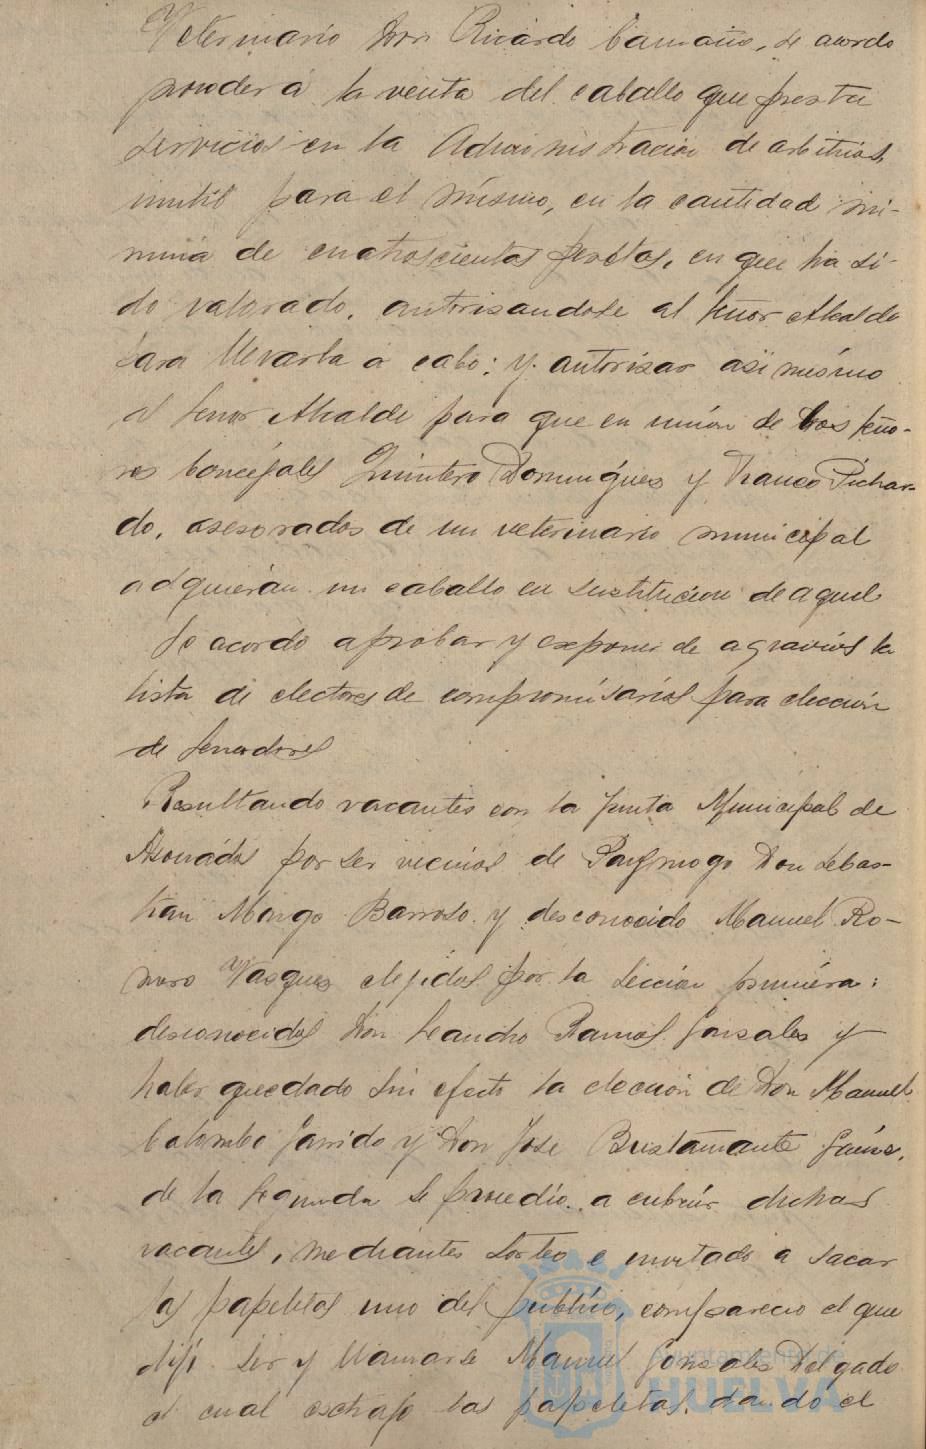 Veterinario Don Ricardo Camaño, se acordo
proceder á la venta del caballo que presta
servicios en la Administración de arbitrios,
inutil para el mismo, en la cantidad mi-
nima de cuatroscientas pesetas, en que ha si-
do valorado, autorisandose al señor Alcalde
para llevarla a cabo; y autorisar asi mismo
al señor Alcalde para que en unión de los seño-
res Concejales Quintero Domingues y Franco Pichar-
do, asesorados de un veterinario municipal
adquieran un caballo en sustitucion de aquel
Se acordo aprobar y exponer de agravios la
lista de electores de compromisarios para elección
de senadores
Resultando vacantes con la Junta Municipal de
Asociados por ser vecinos de Paymogo Don Sebas-
tian Barroso y desconocido Manuel Ro-
mero Vasques elejidos por la sección primera;
desconocidos Don Leandro Ramos Gonsales y
haber quedado sin efecto la elección de Don Manuel
Colombo Garrido y Don Jose Bustamante
de la segunda se procedio a cubrir dichas
vacantes, mediantes sorteo e invitado a sacar
las papeletas uno del publico, comparecio el que
dijo ser y llamarse Manuel Gonsales Delgado
el cual estrajo las papeletas, dando el
Ayuntamiento de
HUELVA